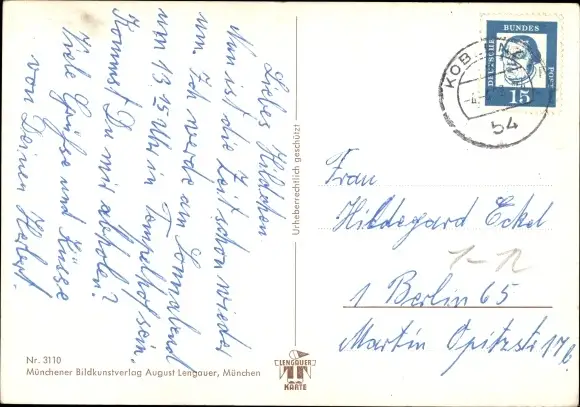 Liebes Hildchen
Nun ist die Zeit schon wieder
um. Ich werde am Sonnabend
um 13.15 Uhr in Tempelhof sein.
Kommst Du mir abholen?
Viele Grüße und Küsse
von Deinen Herbert.
Urheberrechtlich geschützt
DEUTSCHE
BUNDES
POST
15
KOB
54
Frau
Hildegard Eckel
1 Berlin 65
Martin Opitzstr 17
Nr. 3110
Münchener Bildkunstverlag August Lengauer, München
LENGAUER
KARTE